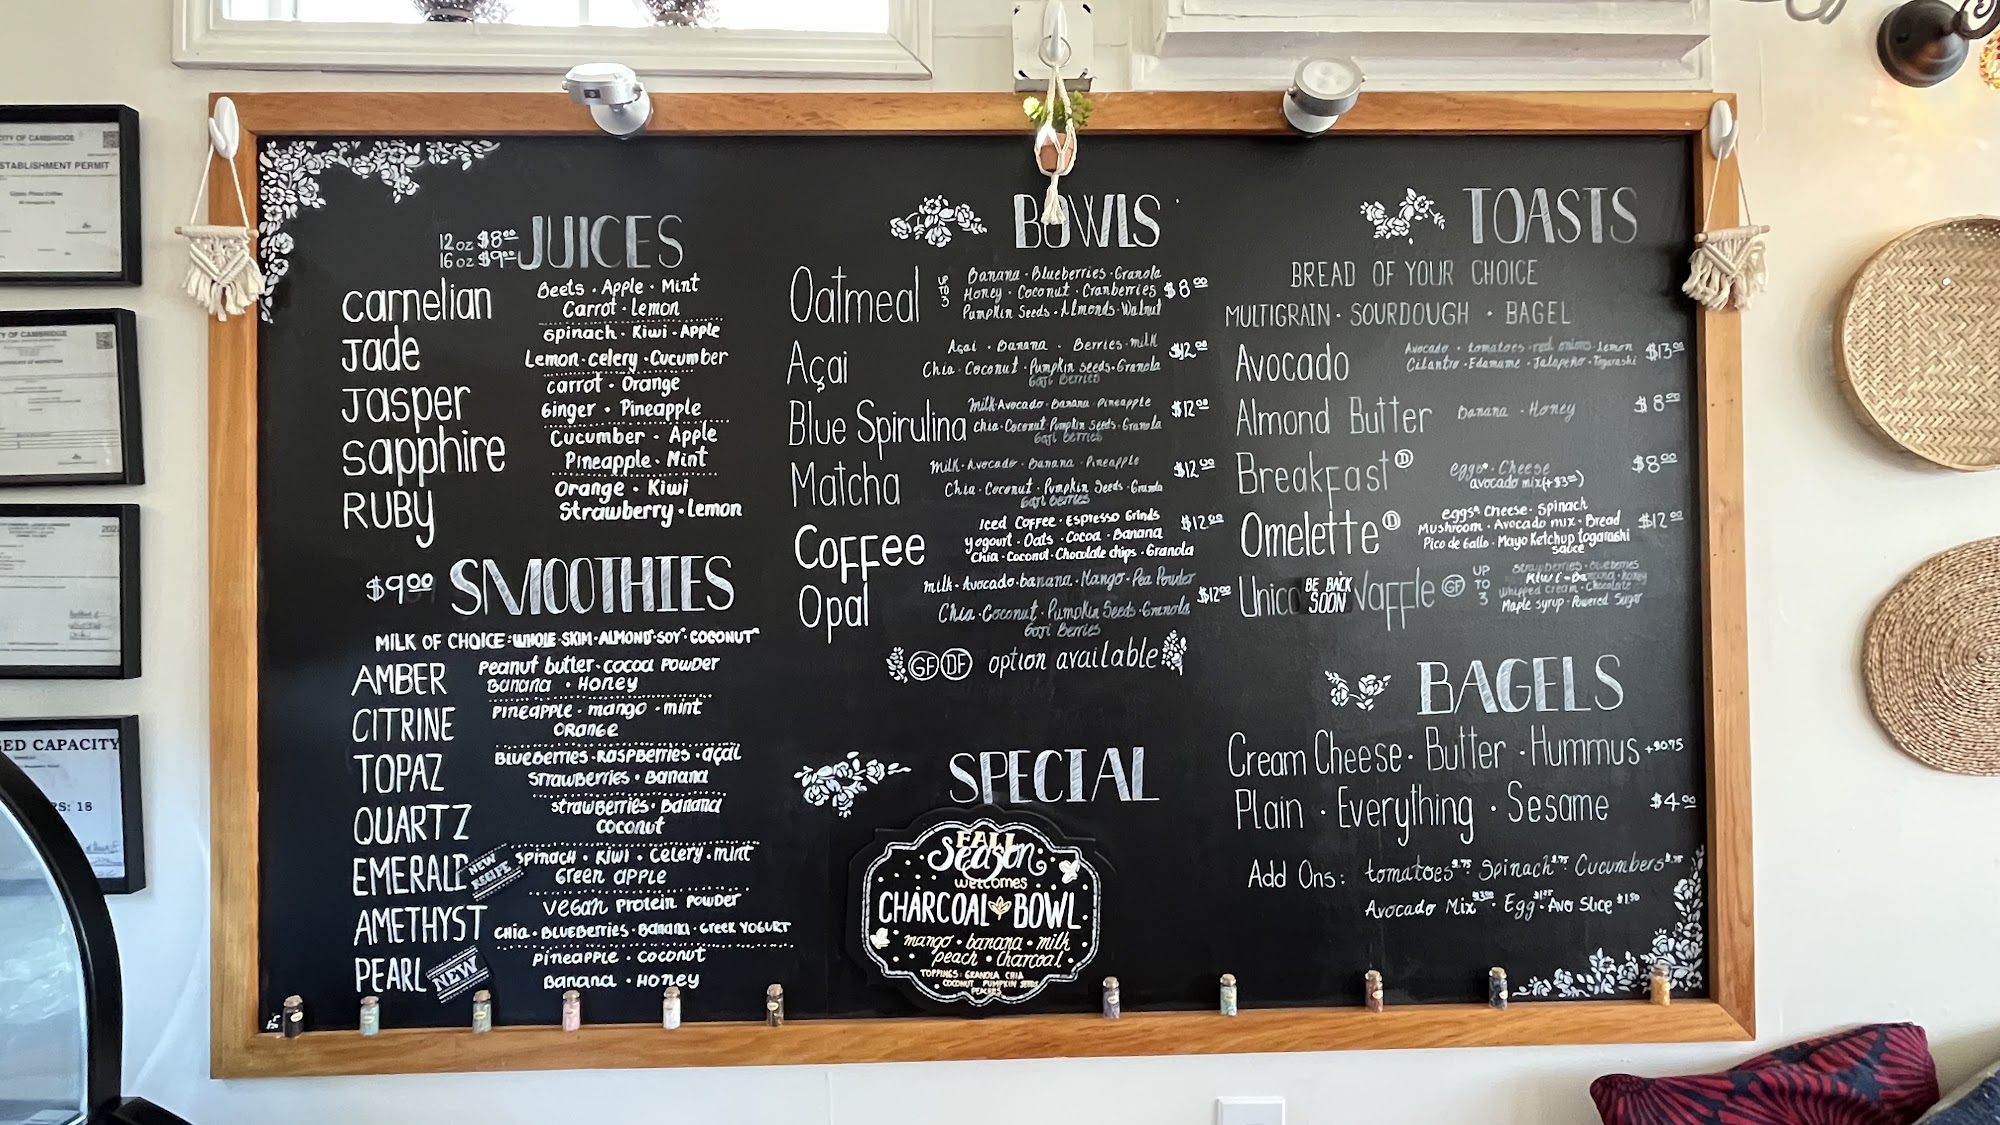 CITY OF CAMBRIDGE
STABLISHMENT PERMIT
CITY OF CAMBRIDGE
SED CAPACITY
RS: 18
12 oz $8.00
16 oz $9.00
JUICES
carnelian
Beets · Apple · Mint
Carrot · Lemon
Jade
Spinach · Kiwi · Apple
Lemon · celery · Cucumber
Jasper
carrot · Orange
Ginger · Pineapple
sapphire
Cucumber · Apple
Pineapple · Mint
RUBY
Orange · Kiwi
Strawberry · Lemon
$9.00 SMOOTHIES
MILK OF CHOICE: WHOLE · SKIM · ALMOND · SOY · COCONUT
AMBER
Peanut butter · cocoa Powder
Banana · Honey
CITRINE
Pineapple · mango · mint
Orange
TOPAZ
Blueberries · Raspberries · açaí
Strawberries · Banana
QUARTZ
Strawberries · Banana
coconut
EMERALD
NEW RECIPE
Spinach · Kiwi · Celery · mint
Green apple
AMETHYST
vegan Protein Powder
Chia · Blueberries · Banana · Greek Yogurt
PEARL
NEW
Pineapple · coconut
Banana · Honey
BOWLS
Oatmeal
UP TO 3
Banana · Blueberries · Granola
Honey · Coconut · Cranberries
Pumpkin Seeds · Almonds · Walnut
$8.00
Açai
Açai · Banana · Berries · milk
Chia · Coconut · Pumpkin Seeds · Granola
Goji Berries
$12.00
Blue Spirulina
Milk · Avocado · Banana · Pineapple
Chia · Coconut · Pumpkin Seeds · Granola
Goji Berries
$12.00
Matcha
Milk · Avocado · Banana · Pineapple
Chia · Coconut · Pumpkin Seeds · Granola
Goji Berries
$12.00
Coffee
Iced Coffee · Espresso Grinds
Yogourt · Oats · Cocoa · Banana
Chia · Coconut · Chocolate chips · Granola
$12.00
Opal
Milk · Avocado · banana · Mango · Pea Powder
Chia · Coconut · Pumpkin Seeds · Granola
Goji Berries
$12.00
GF DF option available
SPECIAL
FALL
Season
welcomes
CHARCOAL BOWL
mango · banana · milk
· peach · charcoal ·
TOPPINGS: GRANOLA CHIA
COCONUT PUMPKIN SEEDS
PEACHES
TOASTS
BREAD OF YOUR CHOICE
MULTIGRAIN · SOURDOUGH · BAGEL
Avocado
Avocado · tomatoes · red onions · lemon
Cilantro · Edamame · Jalapeño · Togarashi
$13.00
Almond Butter
Banana · Honey
$8.00
Breakfast D
eggs* · Cheese
avocado mix (+$3.00)
$8.00
Omelette D
eggs* Cheese · Spinach
Mushroom · Avocado mix · Bread
Pico de Gallo · Mayo Ketchup togarashi
sauce
$12.00
Unico
BE BACK
SOON
Waffle GF
UP TO 3
Strawberries · Blueberries
Kiwi · Banana · honey
Whipped cream · Chocolate
Maple syrup · Powered Sugar
BAGELS
Cream Cheese · Butter · Hummus +$0.75
Plain · Everything · Sesame $4.00
Add Ons: tomatoes $.75 · Spinach $.75 · Cucumbers $.75
Avocado Mix $3.00 · Egg $1.75 · Avo Slice $1.50